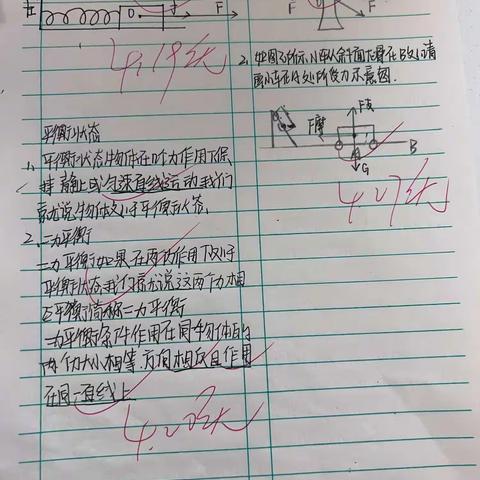 F
4.19
平衡状态
1、平衡状态:物体在时力作用下保
持静止或匀速直线运动,我们
就说物体处于平衡状态.
2、二力平衡
二力平衡:如果在两力作用下处于
平衡状态,我们就说这两个力相
互平衡,简称二力平衡
二力平衡条件:作用在同一物体的
两个力大小相等.方向相反且作用
在同一直线上
4.20
F
F
2、如图所示,小车从斜面下滑在B处,请
画小车在 处所受力示意图.
F支
F摩
A
B
G
4.27